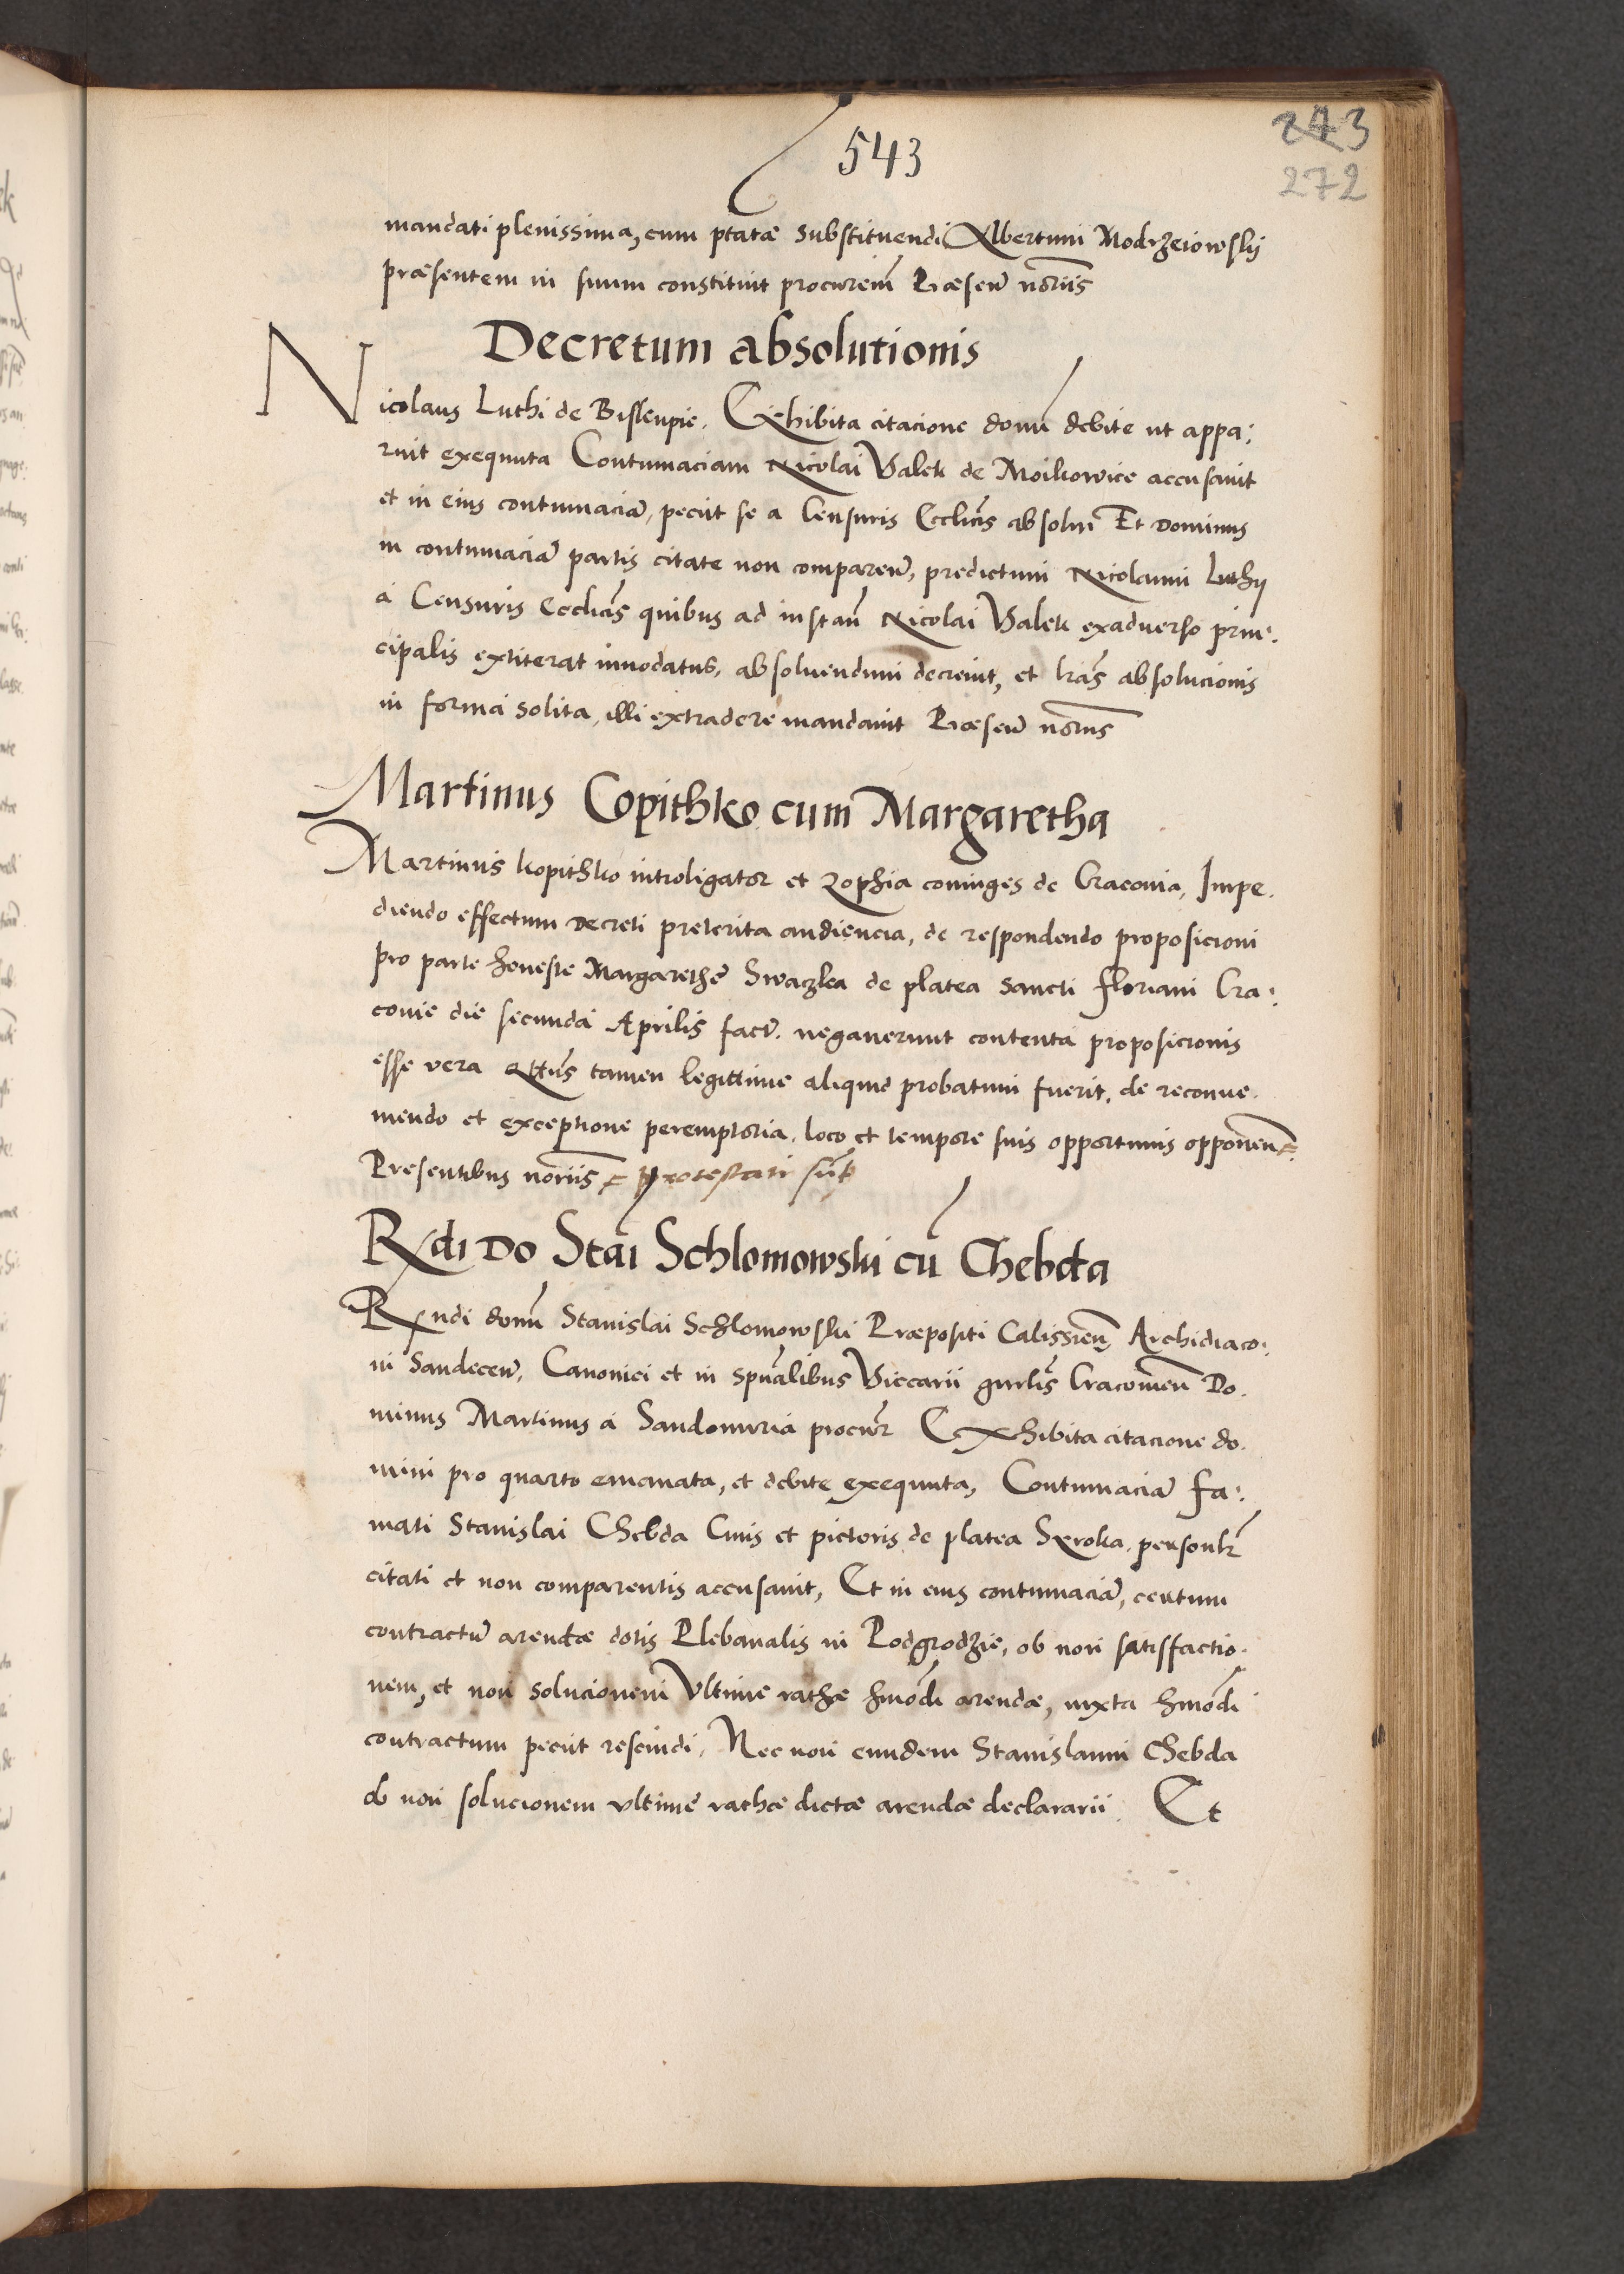 543
243
272
mandati plenissima, cum ptate substituendi Albertum Modrzeiowskij
præsentem in suum constituit procurem̃ Præsen̄ notriis
Decretum absolutionis
Nicolaus Luthi de Biskupie. Exhibita citacione domī debite ut appa:
ruit exequuta Contumaciam Nicolai Valek de Moikowice accusauit
et in eius contumaciā, peciit se a Censuris Ecclicīs absolui Et Dominus
in contumaciā partis citate non comparen̄, predictum Nicolaum Luthij
á Censuris Ecclicīs quibus ad instan̄ Nicolai Valek exaduerso prin:
cipalis extiterat innodatus, absoluendum decreuit, et lrās absolucionis
in forma solita, illi extradere mandauit Præsen̄ notriis
Martinus Copithko cum Margaretha
Martinus kopithko introligator et Zophia coniuges de Cracouia, Impe.
diendo effectum Decreti preterita audiencia, de respondendo proposicioni
pro parte honeste Margarethe Swaczka de platea Sancti floriani Cra:
couie die secunda Aprilis fact̄. negauerunt contenta proposicionis
esse vera tamen legittime aliquid probatum fuerit, de reconue.
niendo et exceptione peremptoria, loco et tempore suis opportunis opponen̄
Presentibus notriis protestati sūt
Rdi Do Stāi Schlomowski cū Chebda
Rndi domī Stanislai Schlomowski Præpositi Calissien̄ Archidiaco:
ni Sandecen̄, Canonici et in spūalibus Viccarii gnrlis Cracouien̄ Do.
minus Martinus á Sandomiria procur̄ Exhibita citacione do.
mini pro quarto emanata, et debite exequuta, Contumaciā fa:
mati Stanislai Chebda Ciuis et pictoris de platea Sxroka, personlr̄
citati et non comparentis accusauit, Et in eius contumaciā, centum
contractū arendæ dotis Plebanalis in Podgrodzie, ob non satisfactio.
nem, et non solucionem Vltime rathæ hmōdi arendæ, iuxta hmōdi
contractum peciit rescindi, Nec non eundem Stanislaum Chebda
ob non solucionem vltimę rathæ dictæ arendæ declararii. Et